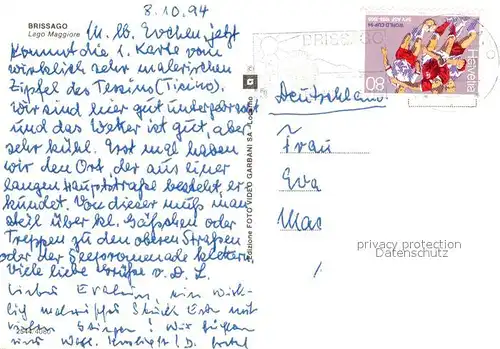 8.10.94
BRISSAGO
Lago Maggiore
M. lb. Evchen, jetzt
kommt die 1. Karte vom
wirklich sehr malerischen
Zipfel des Tessins (Ticino).
Wir sind hier gut untergebracht
und das Wetter ist gut, aber
sehr kühl. Erst mal haben
wir den Ort, der aus einer
langen Hauptstraße besteht, er
kundet. Von dieser muß man
steil über kl. Gäßchen oder
Treppen zu den oberen Straßen
oder der Seepromenade klettern.
Viele liebe Grüße v. D. L.
Liebes Evchen, ein wirk-
lich malerisches Stück Erde mit
hohen Bergen! Wir
Edizione FOTO VIDEO GARBANI SA - Locarno
BRISSAGO
WORLD CUP 94
Helvetia
80
Deutschland
Frau
Eva
privacy protection
Datenschutz